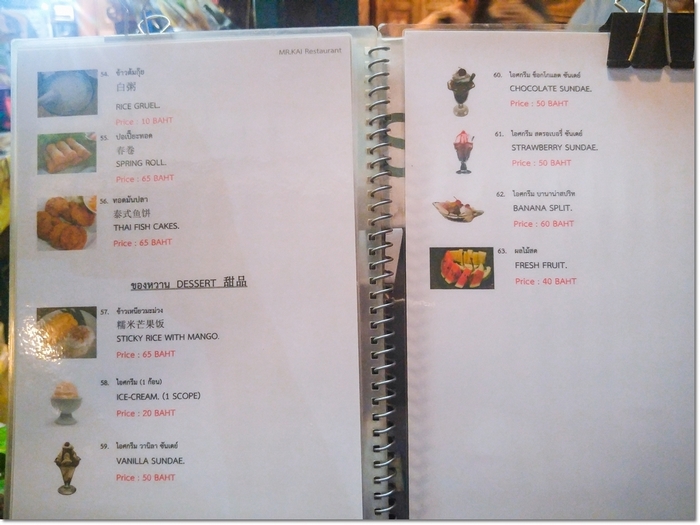 MILKAI Restaurant
54. ข้าวต้มกุ๊ย
白粥
RICE GRUEL.
Price : 10 BAHT
55. ปอเปี๊ยะทอด
春卷
SPRING ROLL.
Price : 65 BAHT
56. ทอดมันปลา
泰式鱼饼
THAI FISH CAKES.
Price : 65 BAHT
ของหวาน DESSERT 甜品
57. ข้าวเหนียวมะม่วง
糯米芒果饭
STICKY RICE WITH MANGO.
Price : 65 BAHT
58. ไอศกรีม (1 ก้อน)
ICE-CREAM. (1 SCOPE)
Price : 20 BAHT
59. ไอศกรีม วานิลา ซันเดย์
VANILLA SUNDAE.
Price : 50 BAHT
60. ไอศกรีม ช็อกโกแลต ซันเดย์
CHOCOLATE SUNDAE.
Price : 50 BAHT
61. ไอศกรีม สตรอเบอรี่ ซันเดย์
STRAWBERRY SUNDAE.
Price : 50 BAHT
62. ไอศกรีม บานาน่าสปริท
BANANA SPLIT.
Price : 60 BAHT
63. ผลไม้สด
FRESH FRUIT.
Price : 40 BAHT